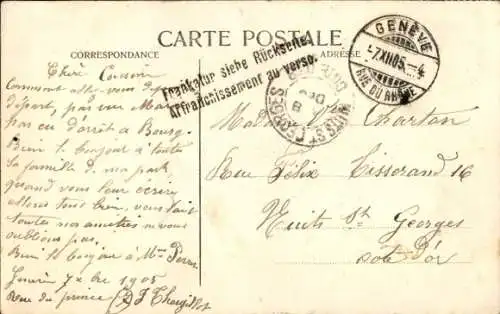 CARTE POSTALE
CORRESPONDANCE
ADRESSE
Frankatur siehe Rückseite.
Affranchissement au verso.
GENÈVE
-7.XII05.-4
RUE DU RHÔNE
NUITS-ST-GEORGES
COTE D'OR
Chère Cousine
Comment allez vous
départ, pas vu Mar
pas eu d'arrêt à Bourg.
Bien le bonjour à toute
la famille de ma part,
quand vous leur écrire
allons tous bien, vous fait
toutes nos amitiés n vous
oublions pas,
Bien le bonjour à Mme
Genève 7 xbre 1905
Rue du prince
Madame Vve Charton
Rue Félix Tisserand 16
Nuits St Georges
Côte d'or